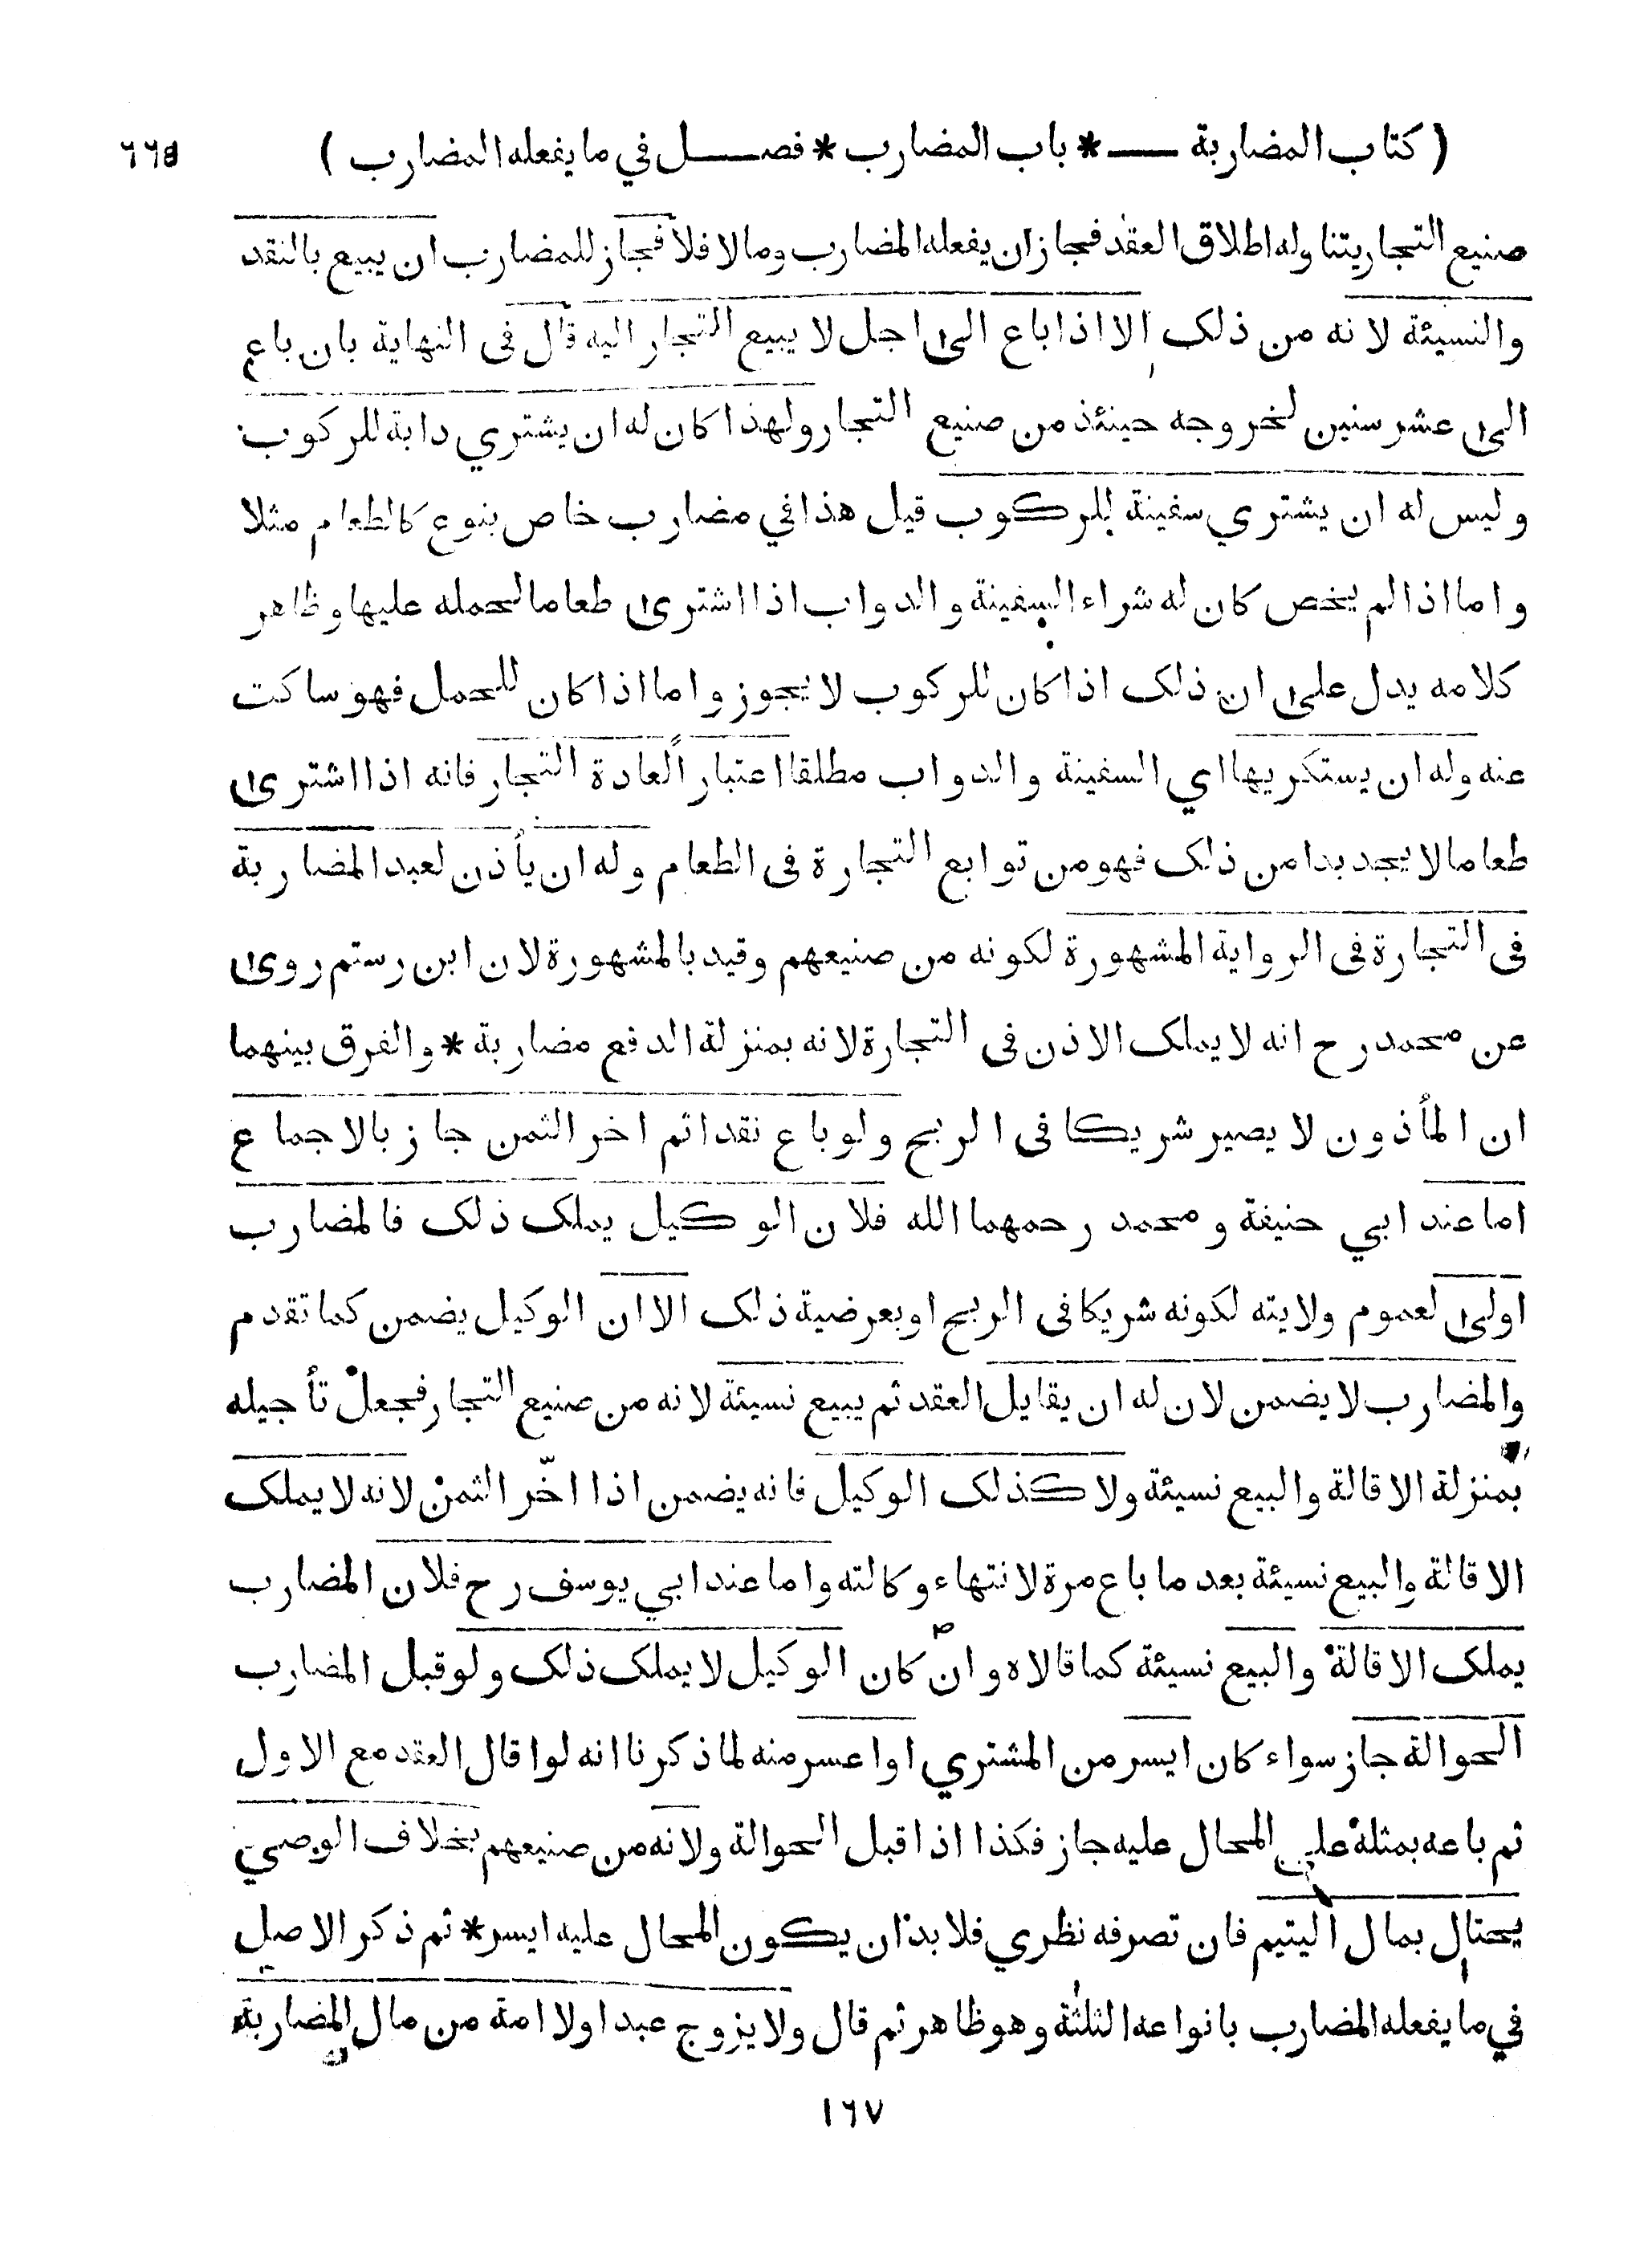 ( كتاب المضاربة — * باب المضارب * فصل في ما يفعله المضارب )
صنيع التجار يتناوله اطلاق العقد فجاز ان يفعله المضارب وما لا فلا فجاز للمضارب ان يبيع بالنقد
والنسيئة لانه من ذلك الا اذا باع الى اجل لا يبيع التجار اليه قال فى النهاية بان باع
الى عشر سنين لخروجه حينئذ من صنيع التجار ولهذا كان له ان يشتري دابة للركوب
وليس له ان يشتري سفينة للركوب قيل هذا في مضارب خاص بنوع كالطعام مثلا
واما اذا لم يخص كان له شراء السفينة والدواب اذا اشترى طعاما لحمله عليها وظاهر
كلامه يدل على ان ذلك اذا كان للركوب لا يجوز واما اذا كان للحمل فهو ساكت
عنه وله ان يستكريها اي السفينة والدواب مطلقا اعتبارا لعادة التجار فانه اذا اشترى
طعاما لا يجد بدا من ذلك فهو من توابع التجارة فى الطعام وله ان يأذن لعبد المضاربة
فى التجارة فى الرواية المشهورة لكونه من صنيعهم وقيد بالمشهورة لان ابن رستم روى
عن محمد رح انه لا يملك الاذن فى التجارة لانه بمنزلة الدفع مضاربة * والفرق بينهما
ان المأذون لا يصير شريكا فى الربح ولو باع نقدا ثم اخر الثمن جاز بالاجماع
اما عند ابي حنيفة ومحمد رحمهما الله فلان الوكيل يملك ذلك فالمضارب
اولى لعموم ولايته لكونه شريكا فى الربح او بعرضية ذلك الا ان الوكيل يضمن كما تقدم
والمضارب لا يضمن لان له ان يقايل العقد ثم يبيع نسيئة لانه من صنيع التجار فجعل تأجيله
بمنزلة الاقالة والبيع نسيئة ولا كذلك الوكيل فانه يضمن اذا اخّر الثمن لانه لا يملك
الاقالة والبيع نسيئة بعد ما باع مرة لانتهاء وكالته واما عند ابي يوسف رح فلان المضارب
يملك الاقالة والبيع نسيئة كما قالاه وان كان الوكيل لا يملك ذلك ولو قبل المضارب
الحوالة جاز سواء كان ايسر من المشتري او اعسر منه لما ذكرنا انه لو اقال العقد مع الاول
ثم باعه بمثله على المحال عليه جاز فكذا اذا قبل الحوالة ولانه من صنيعهم بخلاف الوصي
يحتال بمال اليتيم فان تصرفه نظري فلا بد ان يكون المحال عليه ايسر * ثم ذكر الاصل
في ما يفعله المضارب بانواعه الثلثة وهو ظاهر ثم قال ولا يزوج عبدا ولا امة من مال المضاربة
١٦٧